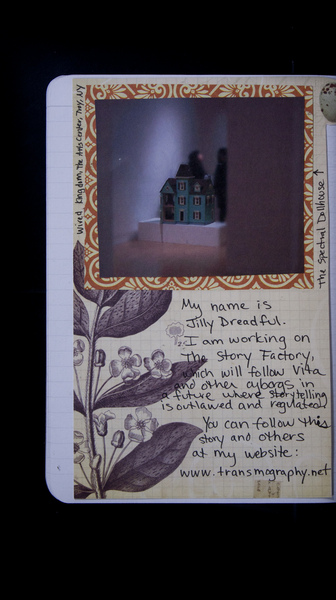 Wired Kingdom, The Arts Center, Troy, NY
The Spectral Dollhouse ↑
My name is
Jilly Dreadful.
I am working on
The Story Factory,
which will follow Vita
and other cyborgs in
a future where storytelling
is outlawed and regulated.
You can follow this
story and others
at my website:
www.transmography.net